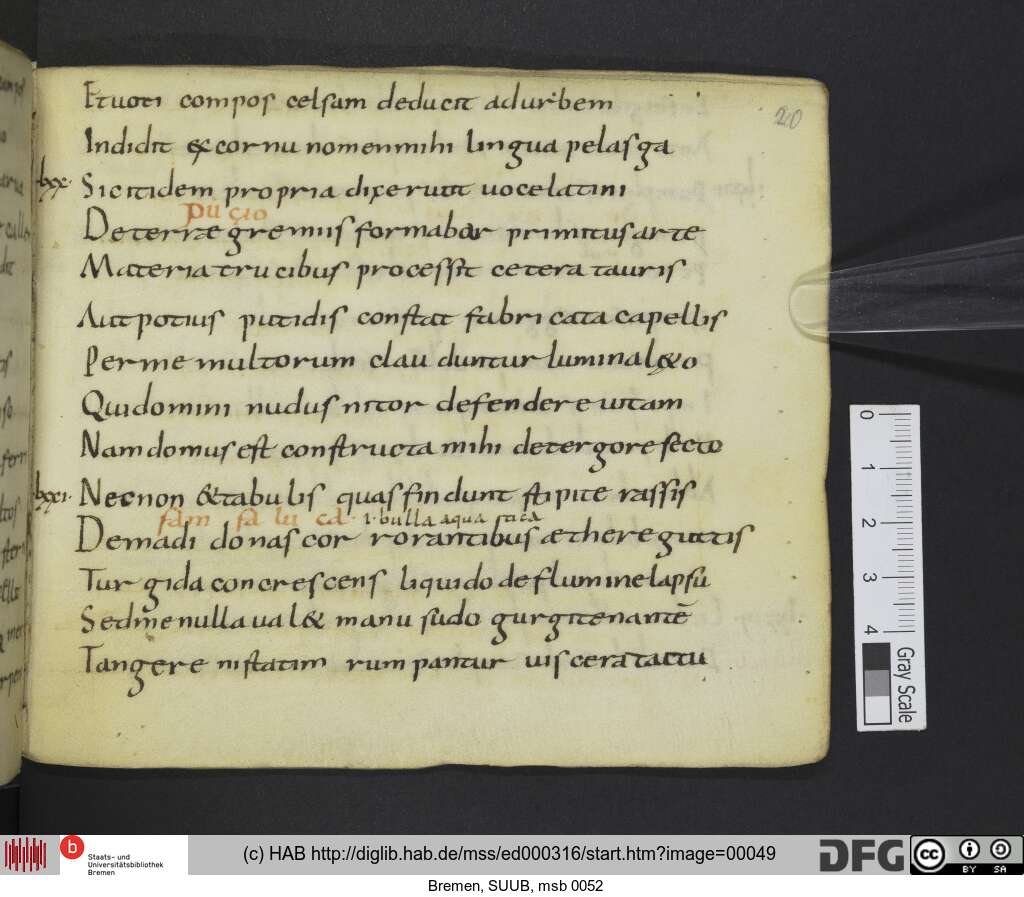 20
Etuoti compos celsam deducit adurbem
Indidit & cornu nomen mihi lingua pelasga
lxx. Sic itidem propria dixerunt uoce latini
pugio
De terrae gremiis formabar primitus arte
Materia trucibus processit cetera tauris
Aut potius putidis constat fabricata capellis
Per me multorum clauduntur lumina l&o
Qui domini nudus nitor defendere uitam
Nam domus est constructa mihi de tergore secto
lxxi. Necnon & tabulis quas findunt stipite rassis
fam fa lu ca .i. bulla aqua tica
De madido nascor rorantibus æthere guttis
Turgida concrescens liquido de flumine lapsu
Sed me nulla ual& manu sudo gurgite nantē
Tangere ni statim rumpantur uiscera tactu
0
1
2
3
4
Gray Scale
b
Staats- und
Universitätsbibliothek
Bremen
(c) HAB http://diglib.hab.de/mss/ed000316/start.htm?image=00049
DFG
cc BY SA
Bremen, SUUB, msb 0052